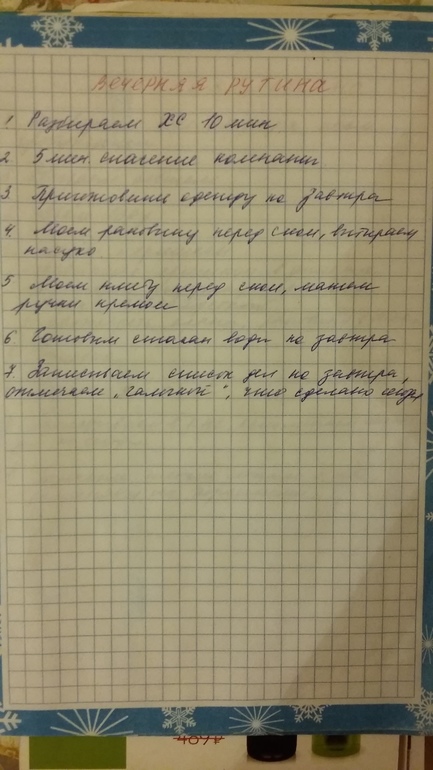 ВЕЧЕРНЯЯ РУТИНА
1. Разбираем ХС 10 мин
2. 5 мин. спасение комнаты
3. Приготовили одежду на завтра
4. Моем раковину перед сном, вытираем
насухо.
5. Моем плиту перед сном, мажем
ручки кремом
6. Готовим стакан воды на завтра
7. Записываем список дел на завтра,
отмечаем „галочкой", что сделано